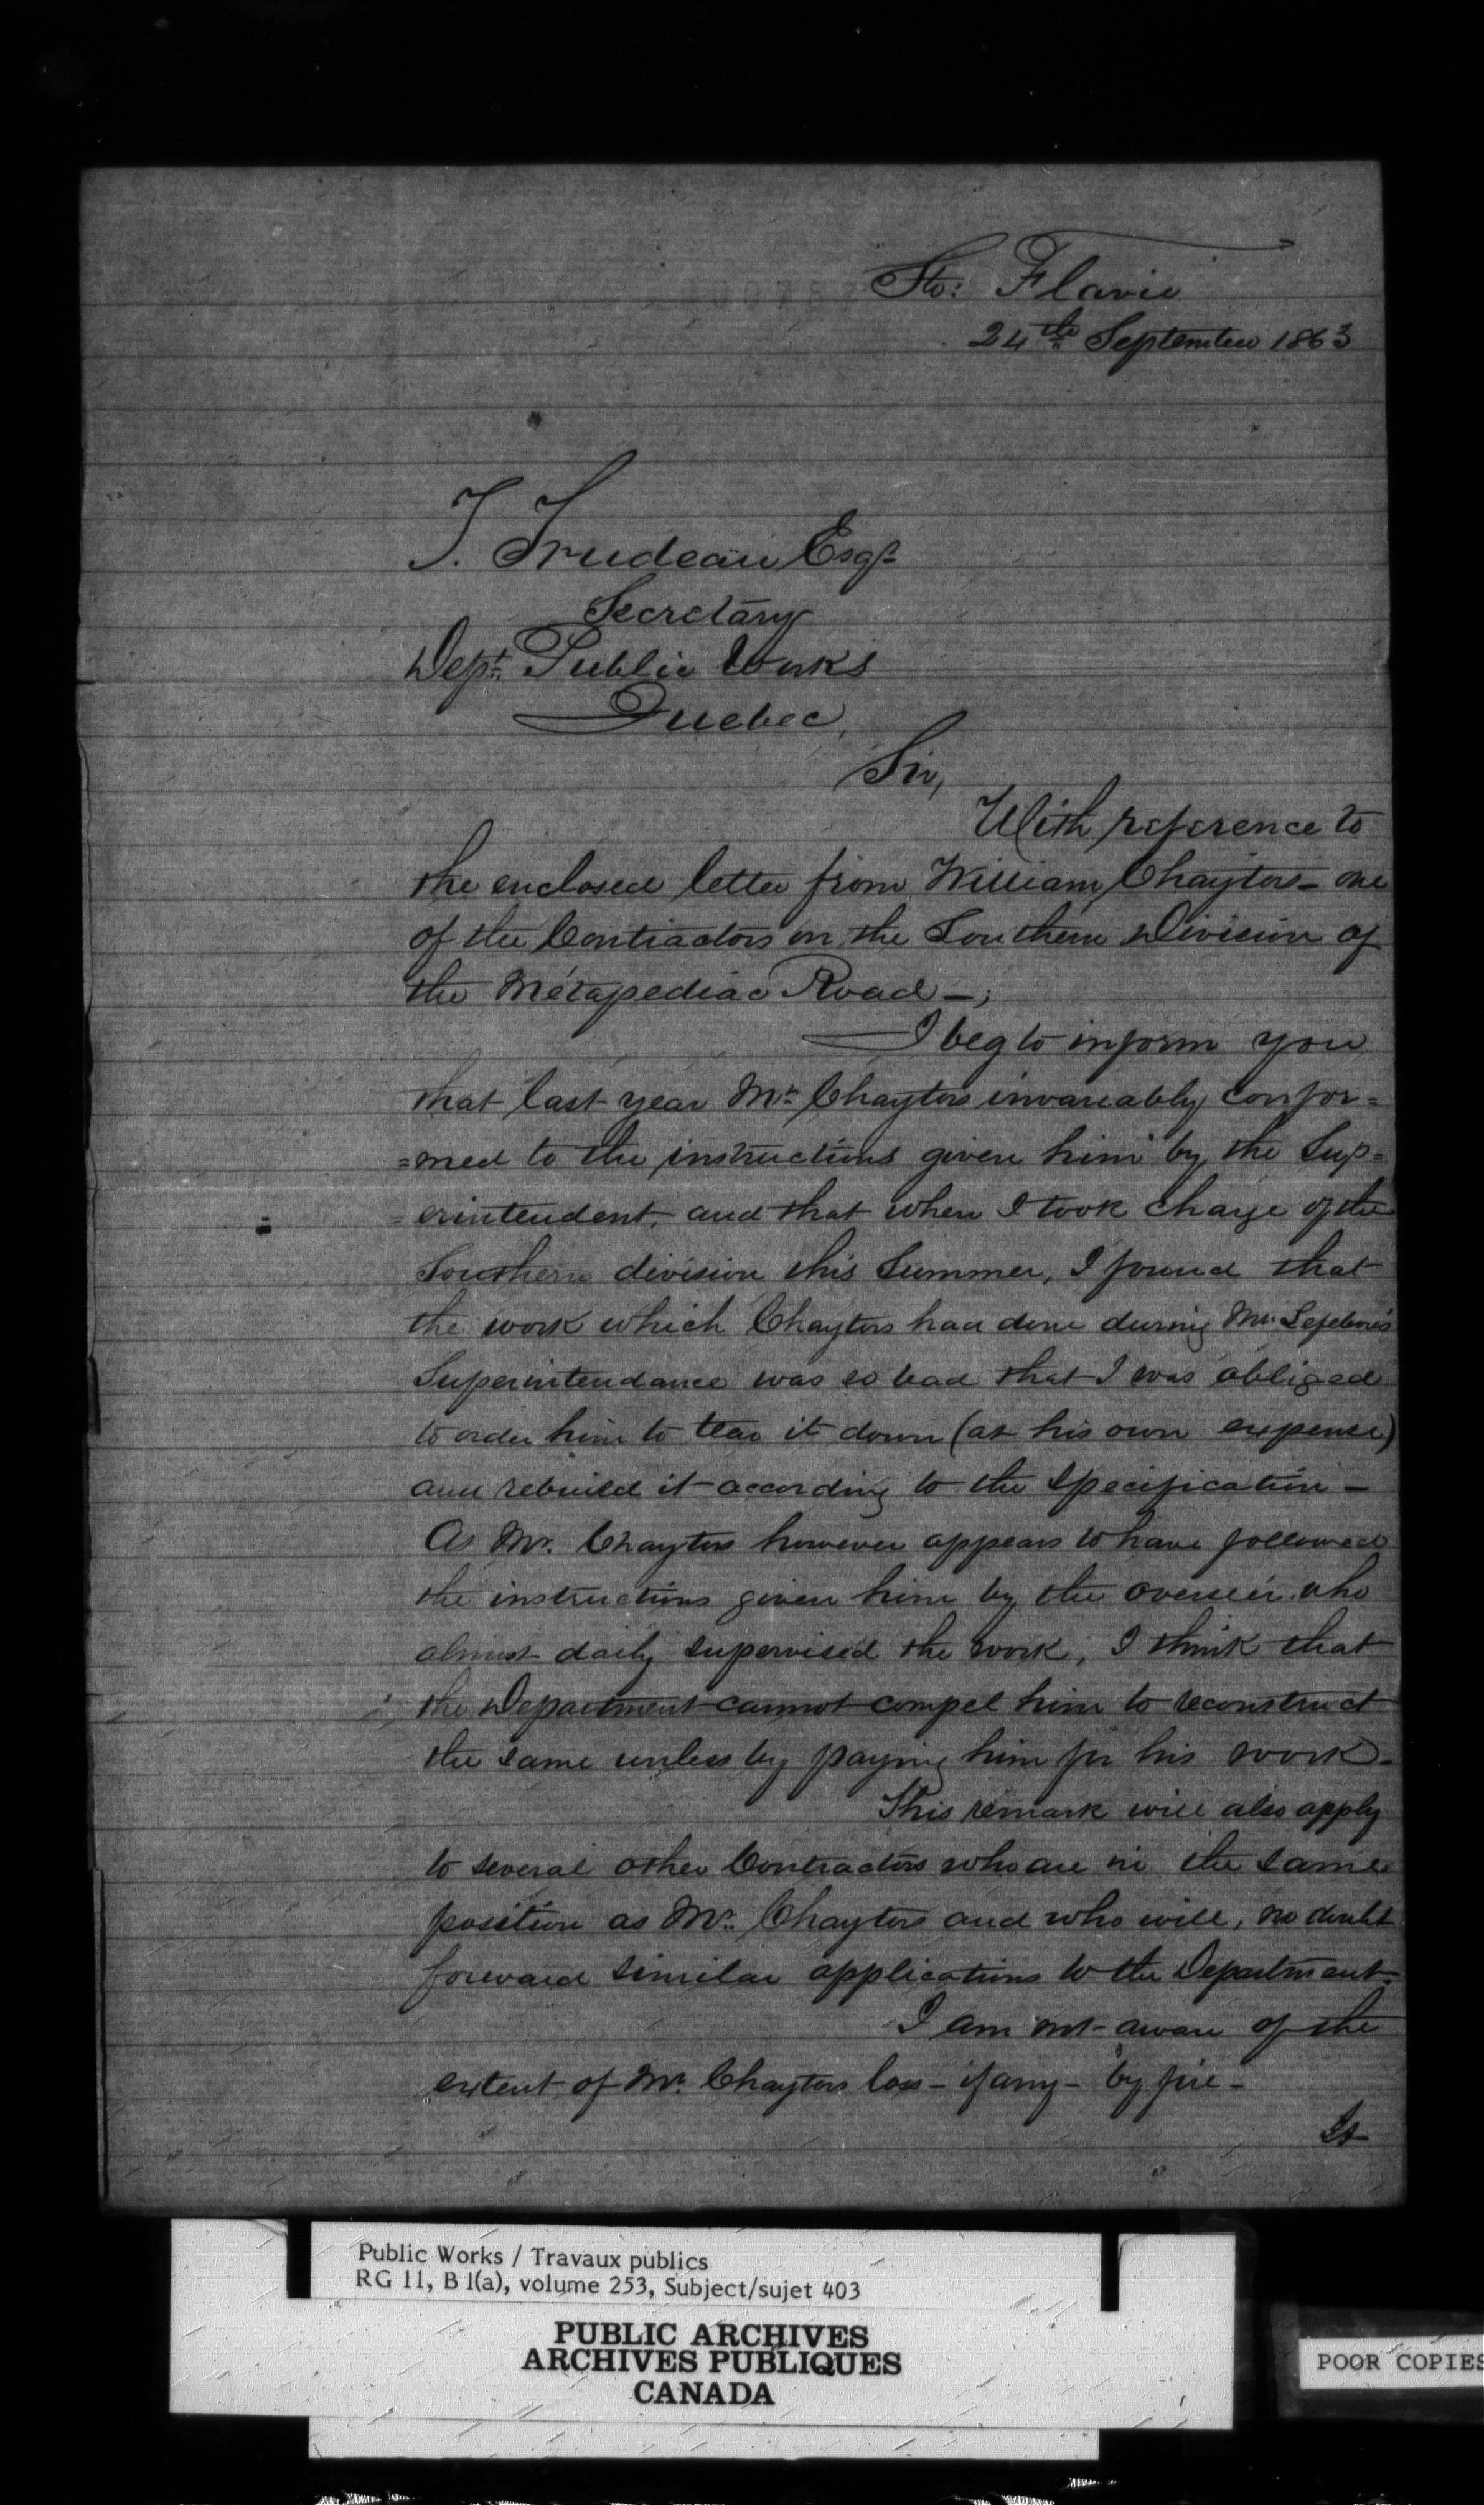 Ste: Flavie
24th September 1863
T. Trudeau Esqr
Secretary
Dept. Public Works
Quebec,
Sir,
With reference to
the enclosed letter from William Chayters - one
of the Contractors on the Southern Division of
the Métapediac Road -;
I beg to inform you
that last year Mr. Chayters invareably confor=
=med to the instructions given him by the Sup=
=erintendent, and that when I took charge of the
Southern division this Summer, I found that
the work which Chayters had done during Mr. Lefebvre's
Superintendance was so bad that I was obliged
to order him to tear it down (at his own expense)
and rebuild it according to the Specification -
As Mr. Chayters however appears to have followed
the instructions given him by the overseer who
almost daily supervised the work, I think that
the Department cannot compel him to reconstruct
the same unless by paying him for his work -
This remark will also apply
to several other Contractors who are in the same
position as Mr. Chayters and who will, no doubt
forward similar applications to the Department.
I am not aware of the
extent of Mr. Chayters loss - if any - by fire -
It
Public Works / Travaux publics
RG 11, B 1(a), volume 253, Subject/sujet 403
PUBLIC ARCHIVES
ARCHIVES PUBLIQUES
CANADA
POOR COPIES